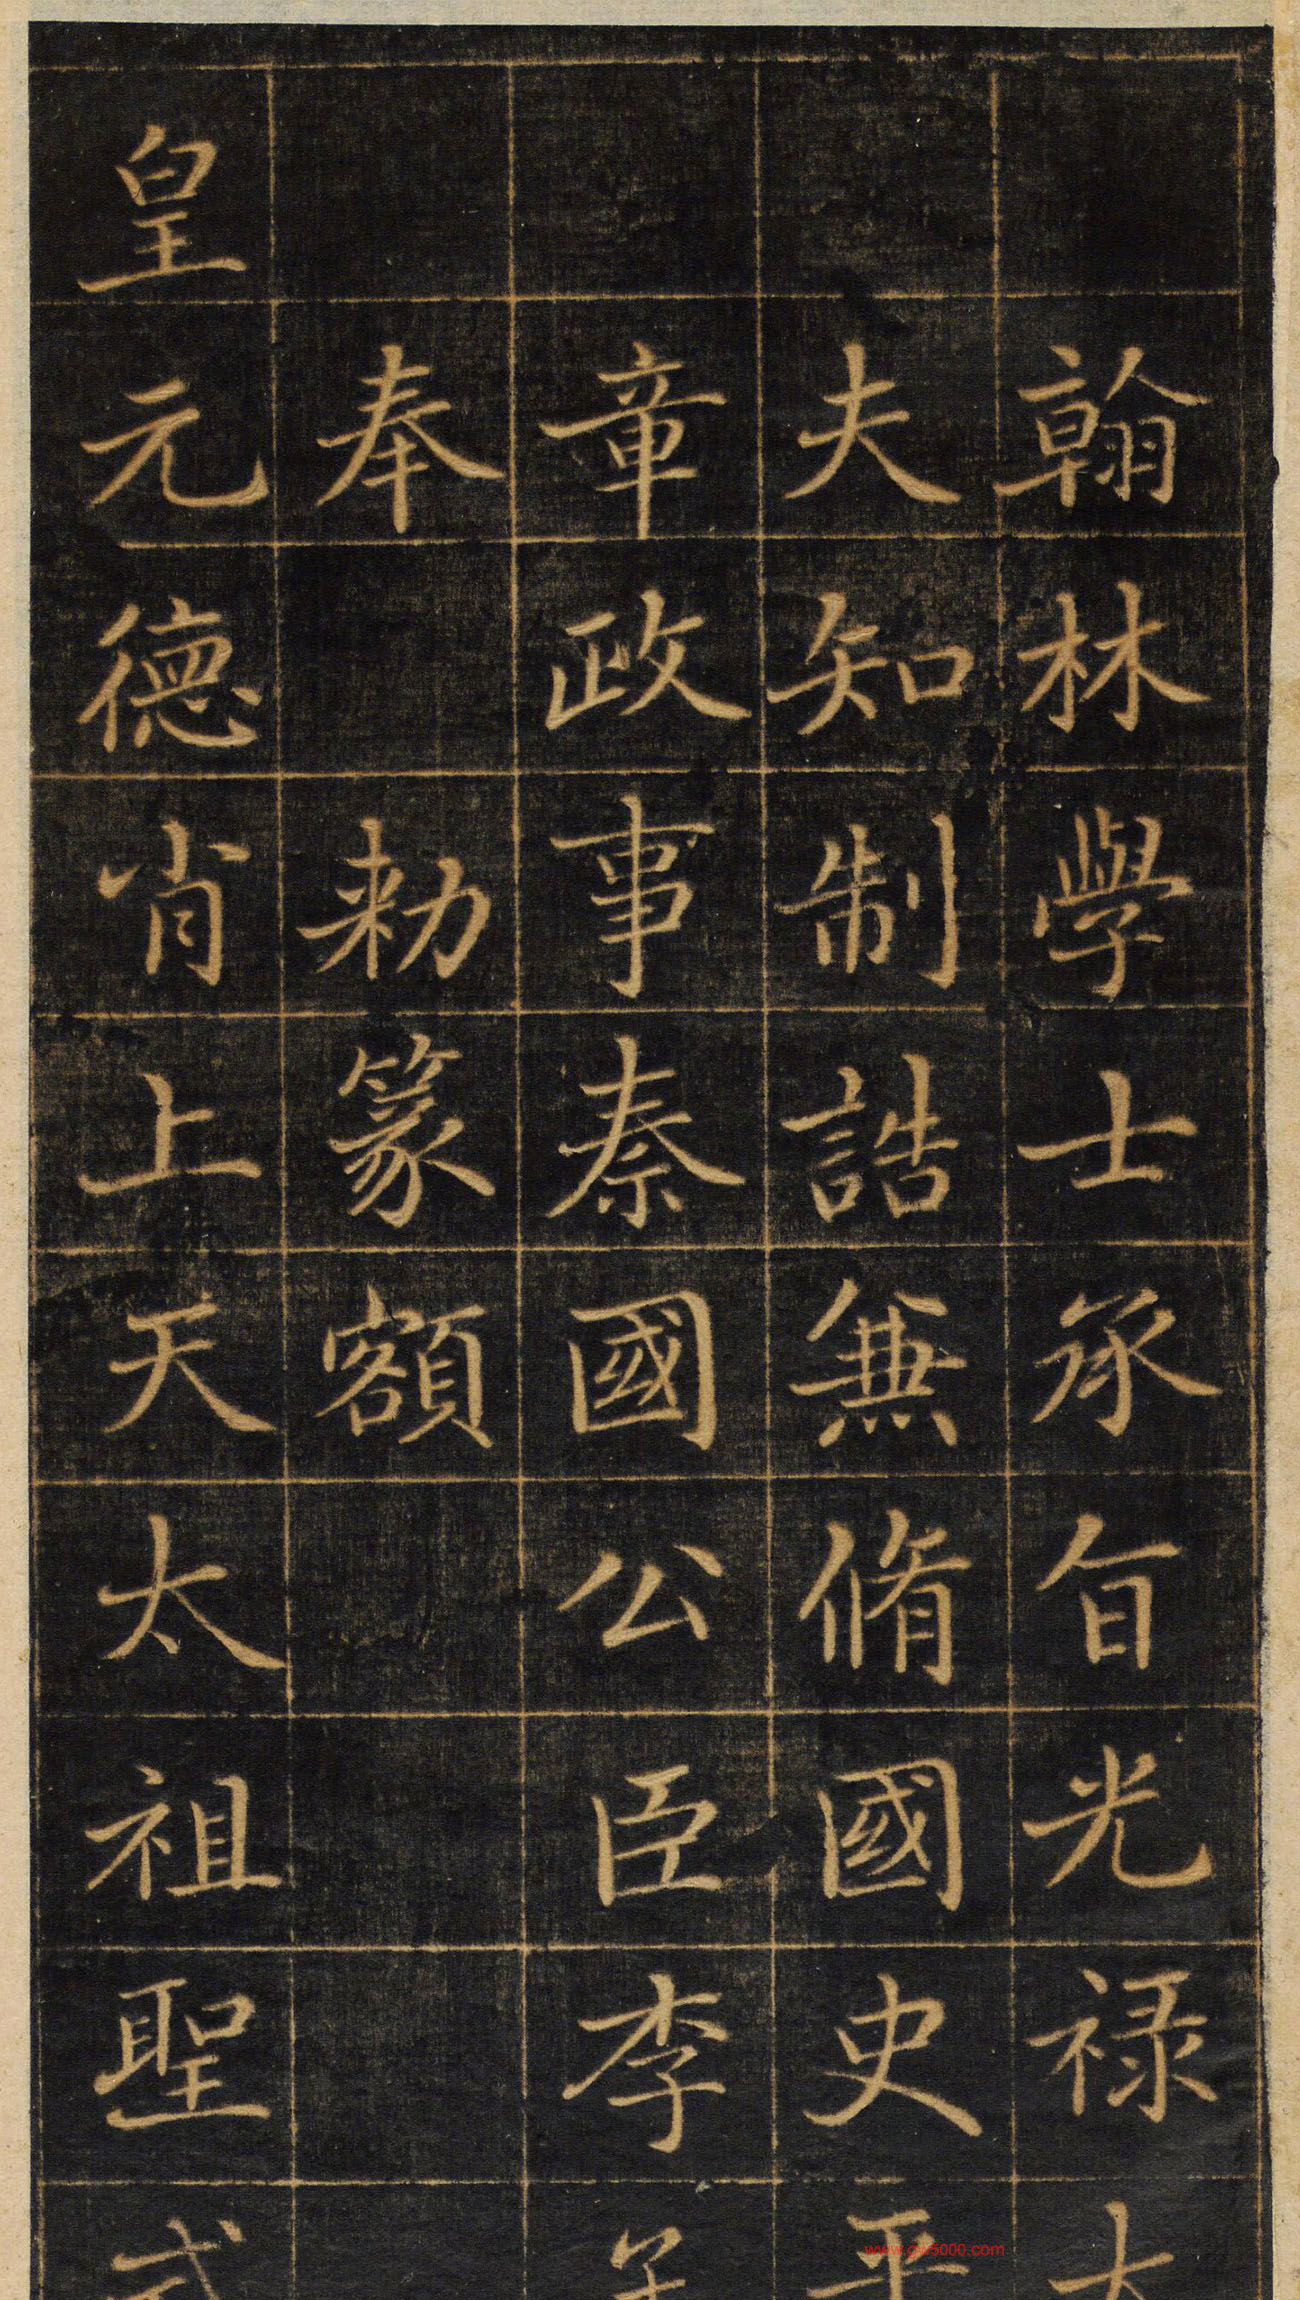 翰林學士承旨光禄大
夫知制誥兼脩國史平
章政事秦國公臣李
奉 勑篆額
皇元德肖上天太祖聖武
www.gsf5000.com